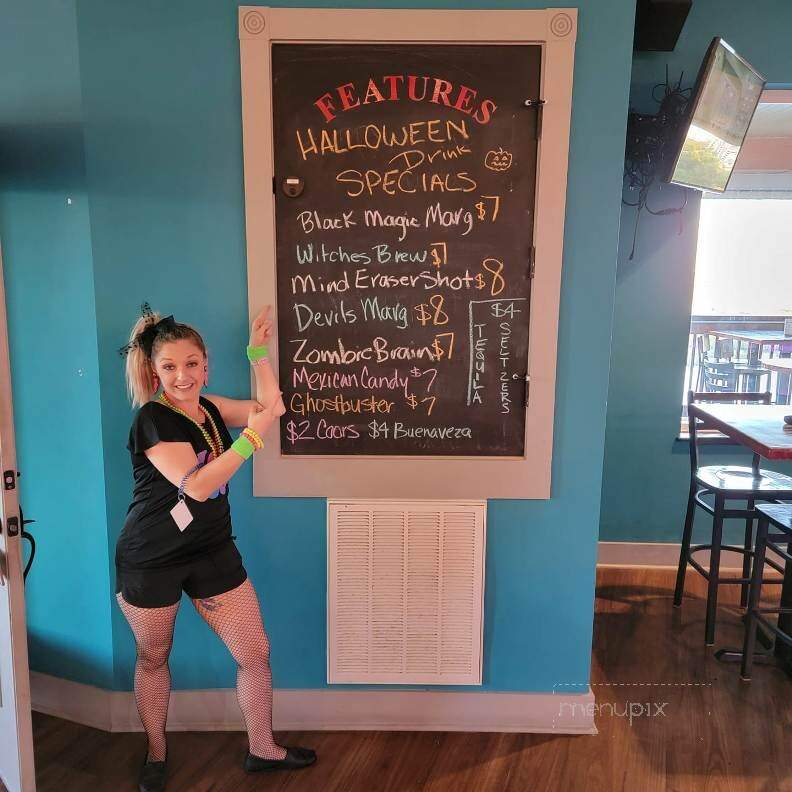 FEATURES
HALLOWEEN
Drink
SPECIALS
Black Magic Marg $7
Witches Brew $7
Mind Eraser Shot $8
Devils Marg $8
Zombie Brain $7
Mexican Candy $7
Ghostbuster $7
$2 Coors $4 Buenaveza
$4
TEQUILA
SELTZERS
menupix